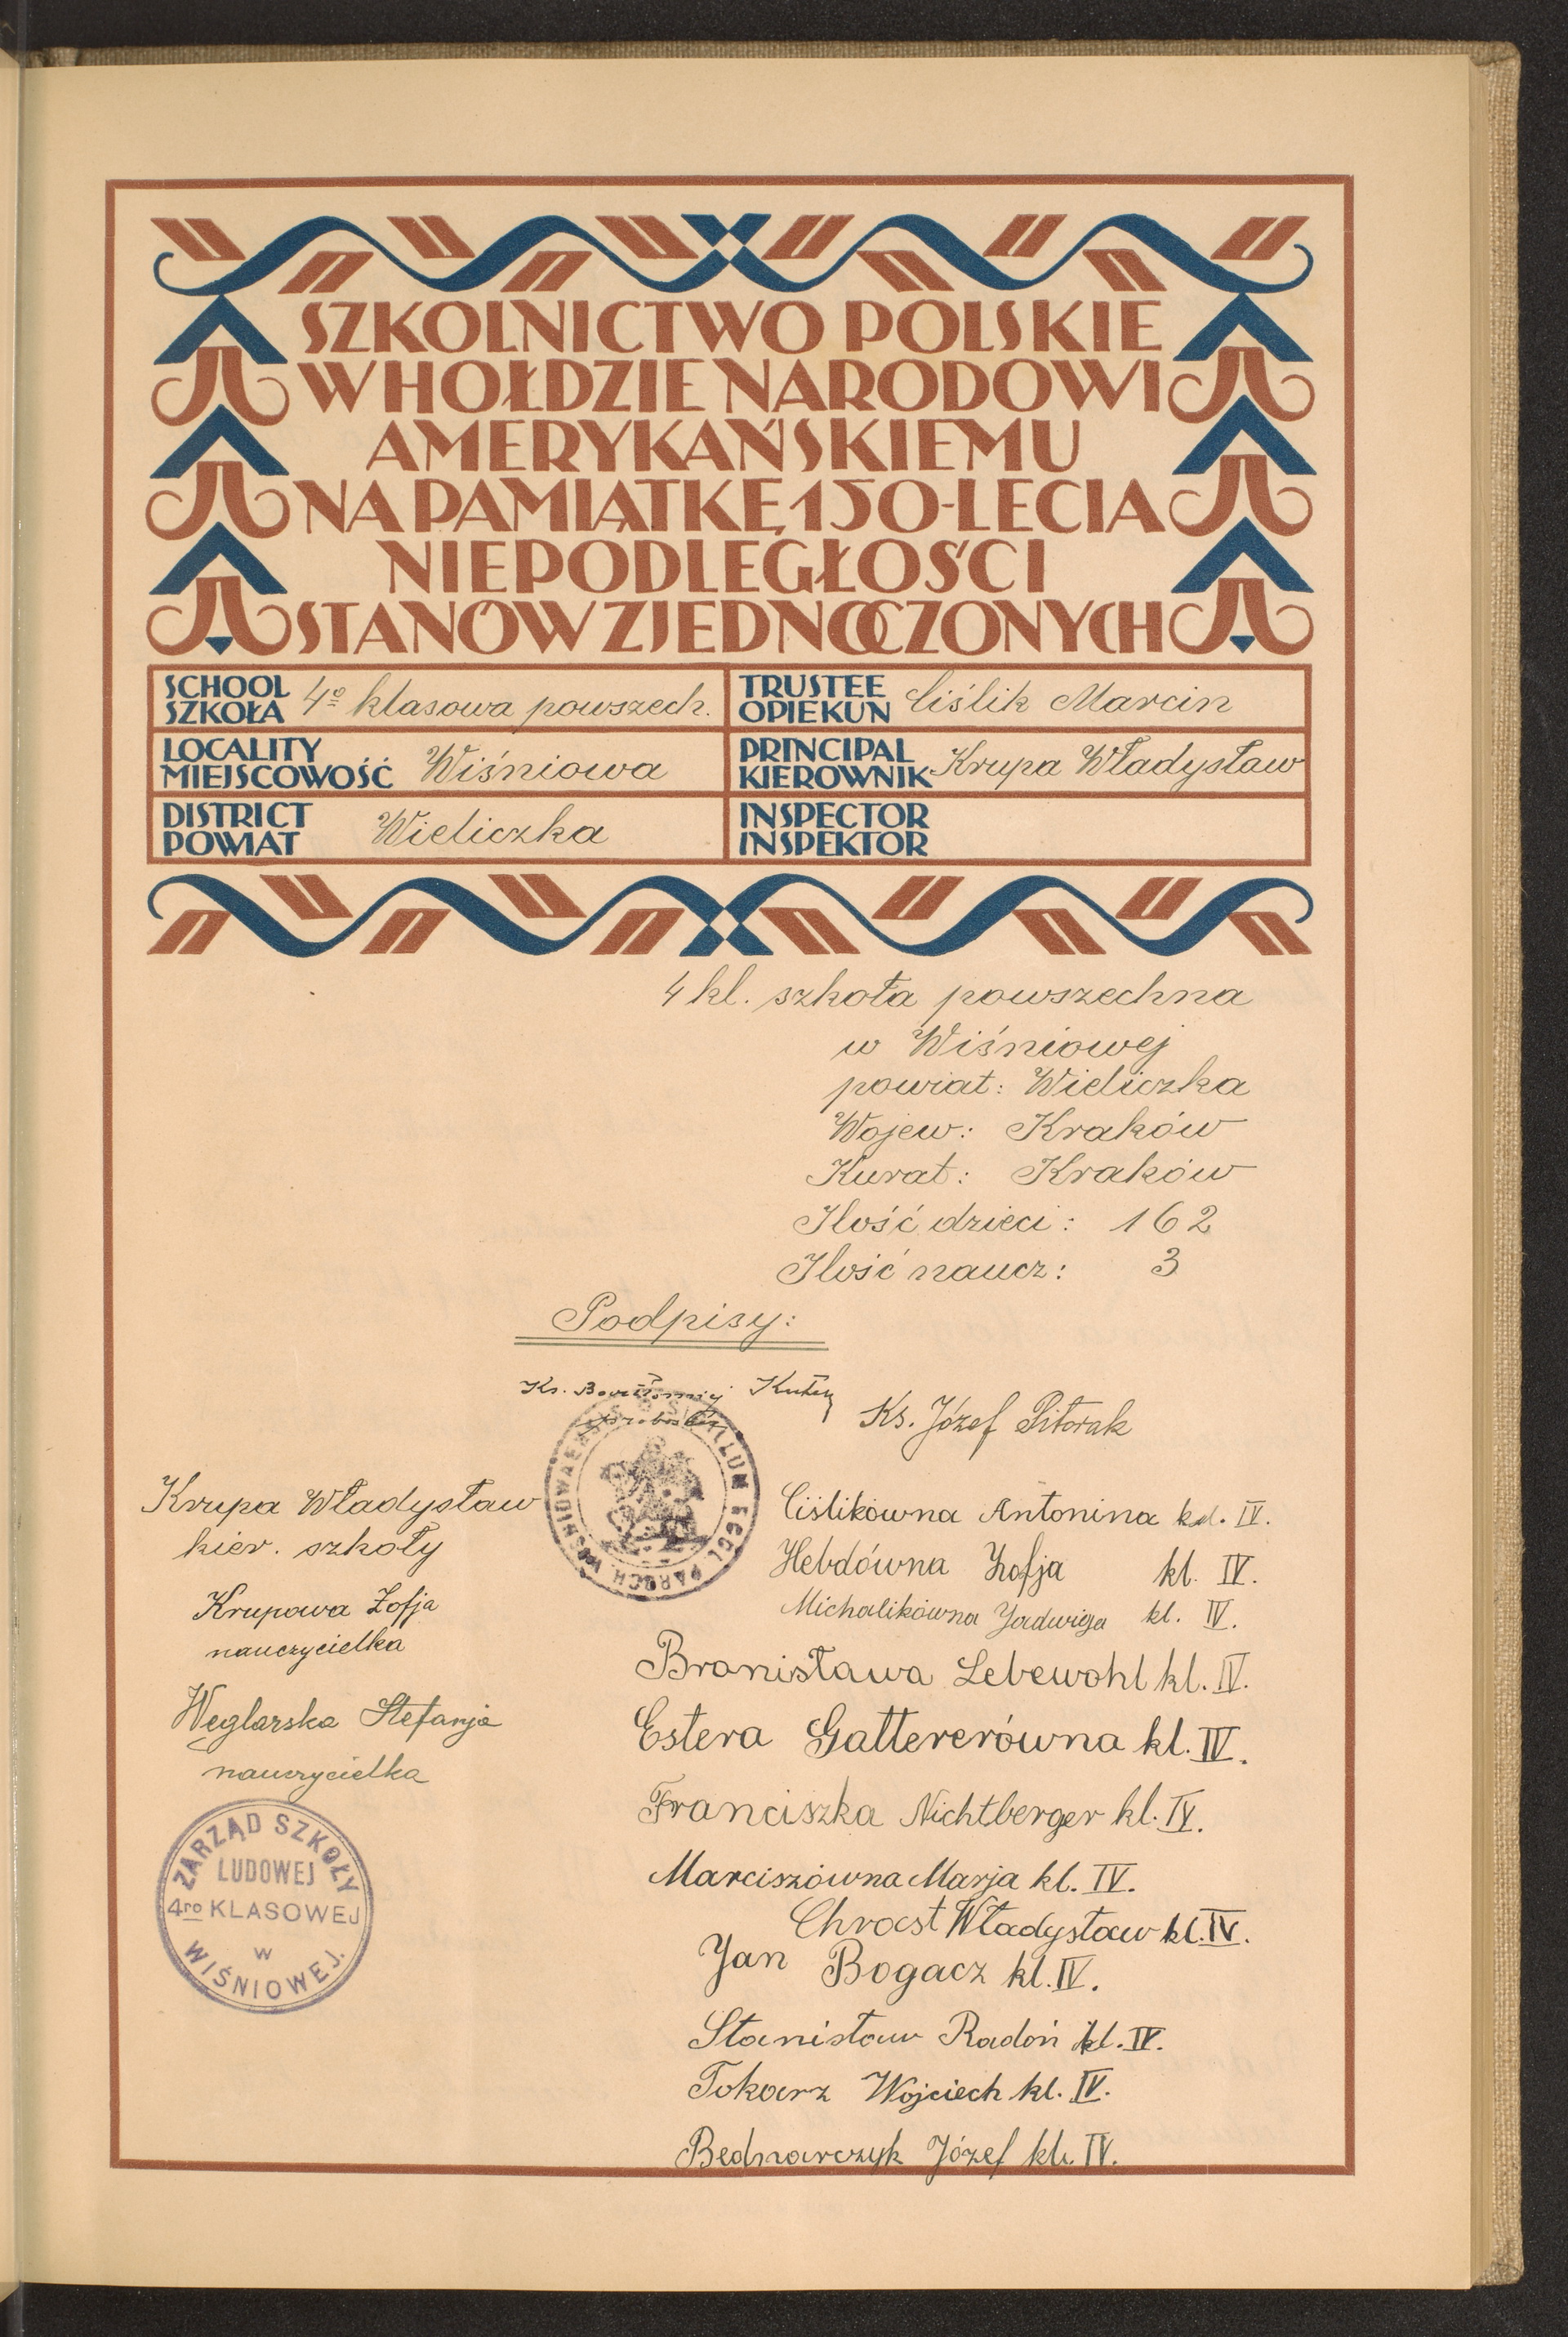 SZKOLNICTWO POLSKIE
W HOŁDZIE NARODOWI
AMERYKAŃSKIEMU
NA PAMIĄTKĘ 150-LECIA
NIEPODLEGŁOŚCI
STANÓW ZJEDNOCZONYCH
SCHOOL
SZKOŁA 4º klasowa powszech.
TRUSTEE
OPIEKUN Ciślik Marcin
LOCALITY
MIEJSCOWOŚĆ Wiśniowa
PRINCIPAL
KIEROWNIK Krupa Władysław
DISTRICT
POWIAT Wieliczka
INSPECTOR
INSPEKTOR
4 kl. szkoła powszechna
w Wiśniowej
powiat: Wieliczka
Wojew: Kraków
Kurat: Kraków
Ilość dzieci: 162
Ilość naucz: 3
Podpisy:
Ks. Bartłomiej
proboszcz
Ks. Józef Pitorak
SIGILLUM ECCL. PAROCH.
Krupa Władysław
kier. szkoły
Krupowa Zofja
nauczycielka
Węglarska Stefanja
nauczycielka
ZARZĄD SZKOŁY
LUDOWEJ
4ro KLASOWEJ
W
WIŚNIOWEJ.
Ciślikówna Antonina kl. IV.
Hebdówna Zofja kl. IV.
Michalikówna Jadwiga kl. IV.
Bronisława Lebewohl kl. IV.
Estera Gattererówna kl. IV.
Franciszka Nichtberger kl. IV.
Marciszówna Marja kl. IV.
Chrast Władysław kl. IV.
Jan Bogacz kl. IV.
Stanisław Radoń kl. IV.
Tokarz Wojciech kl. IV.
Bednarczyk Józef kl. IV.